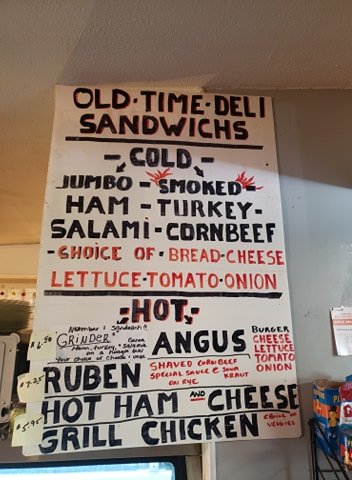 OLD-TIME-DELI
SANDWICHS
-COLD-
JUMBO - SMOKED
HAM - TURKEY-
SALAMI - CORNBEEF
-CHOICE OF - BREAD-CHEESE
LETTUCE-TOMATO-ONION
-HOT-
Number 1 Sandwich!!
$6.50 "GRINDER"
Ham, turkey, salami
on a hoagie bun
Your choice of cheese + vegs
ANGUS BURGER
CHEESE
LETTUCE
TOMATO
ONION
$7.25 RUBEN SHAVED CORN BEEF
SPECIAL SAUCE & SOUR
KRAUT
ON RYE
HOT HAM AND CHEESE
$5.95 GRILL CHICKEN CHOICE OF
VEGGIES